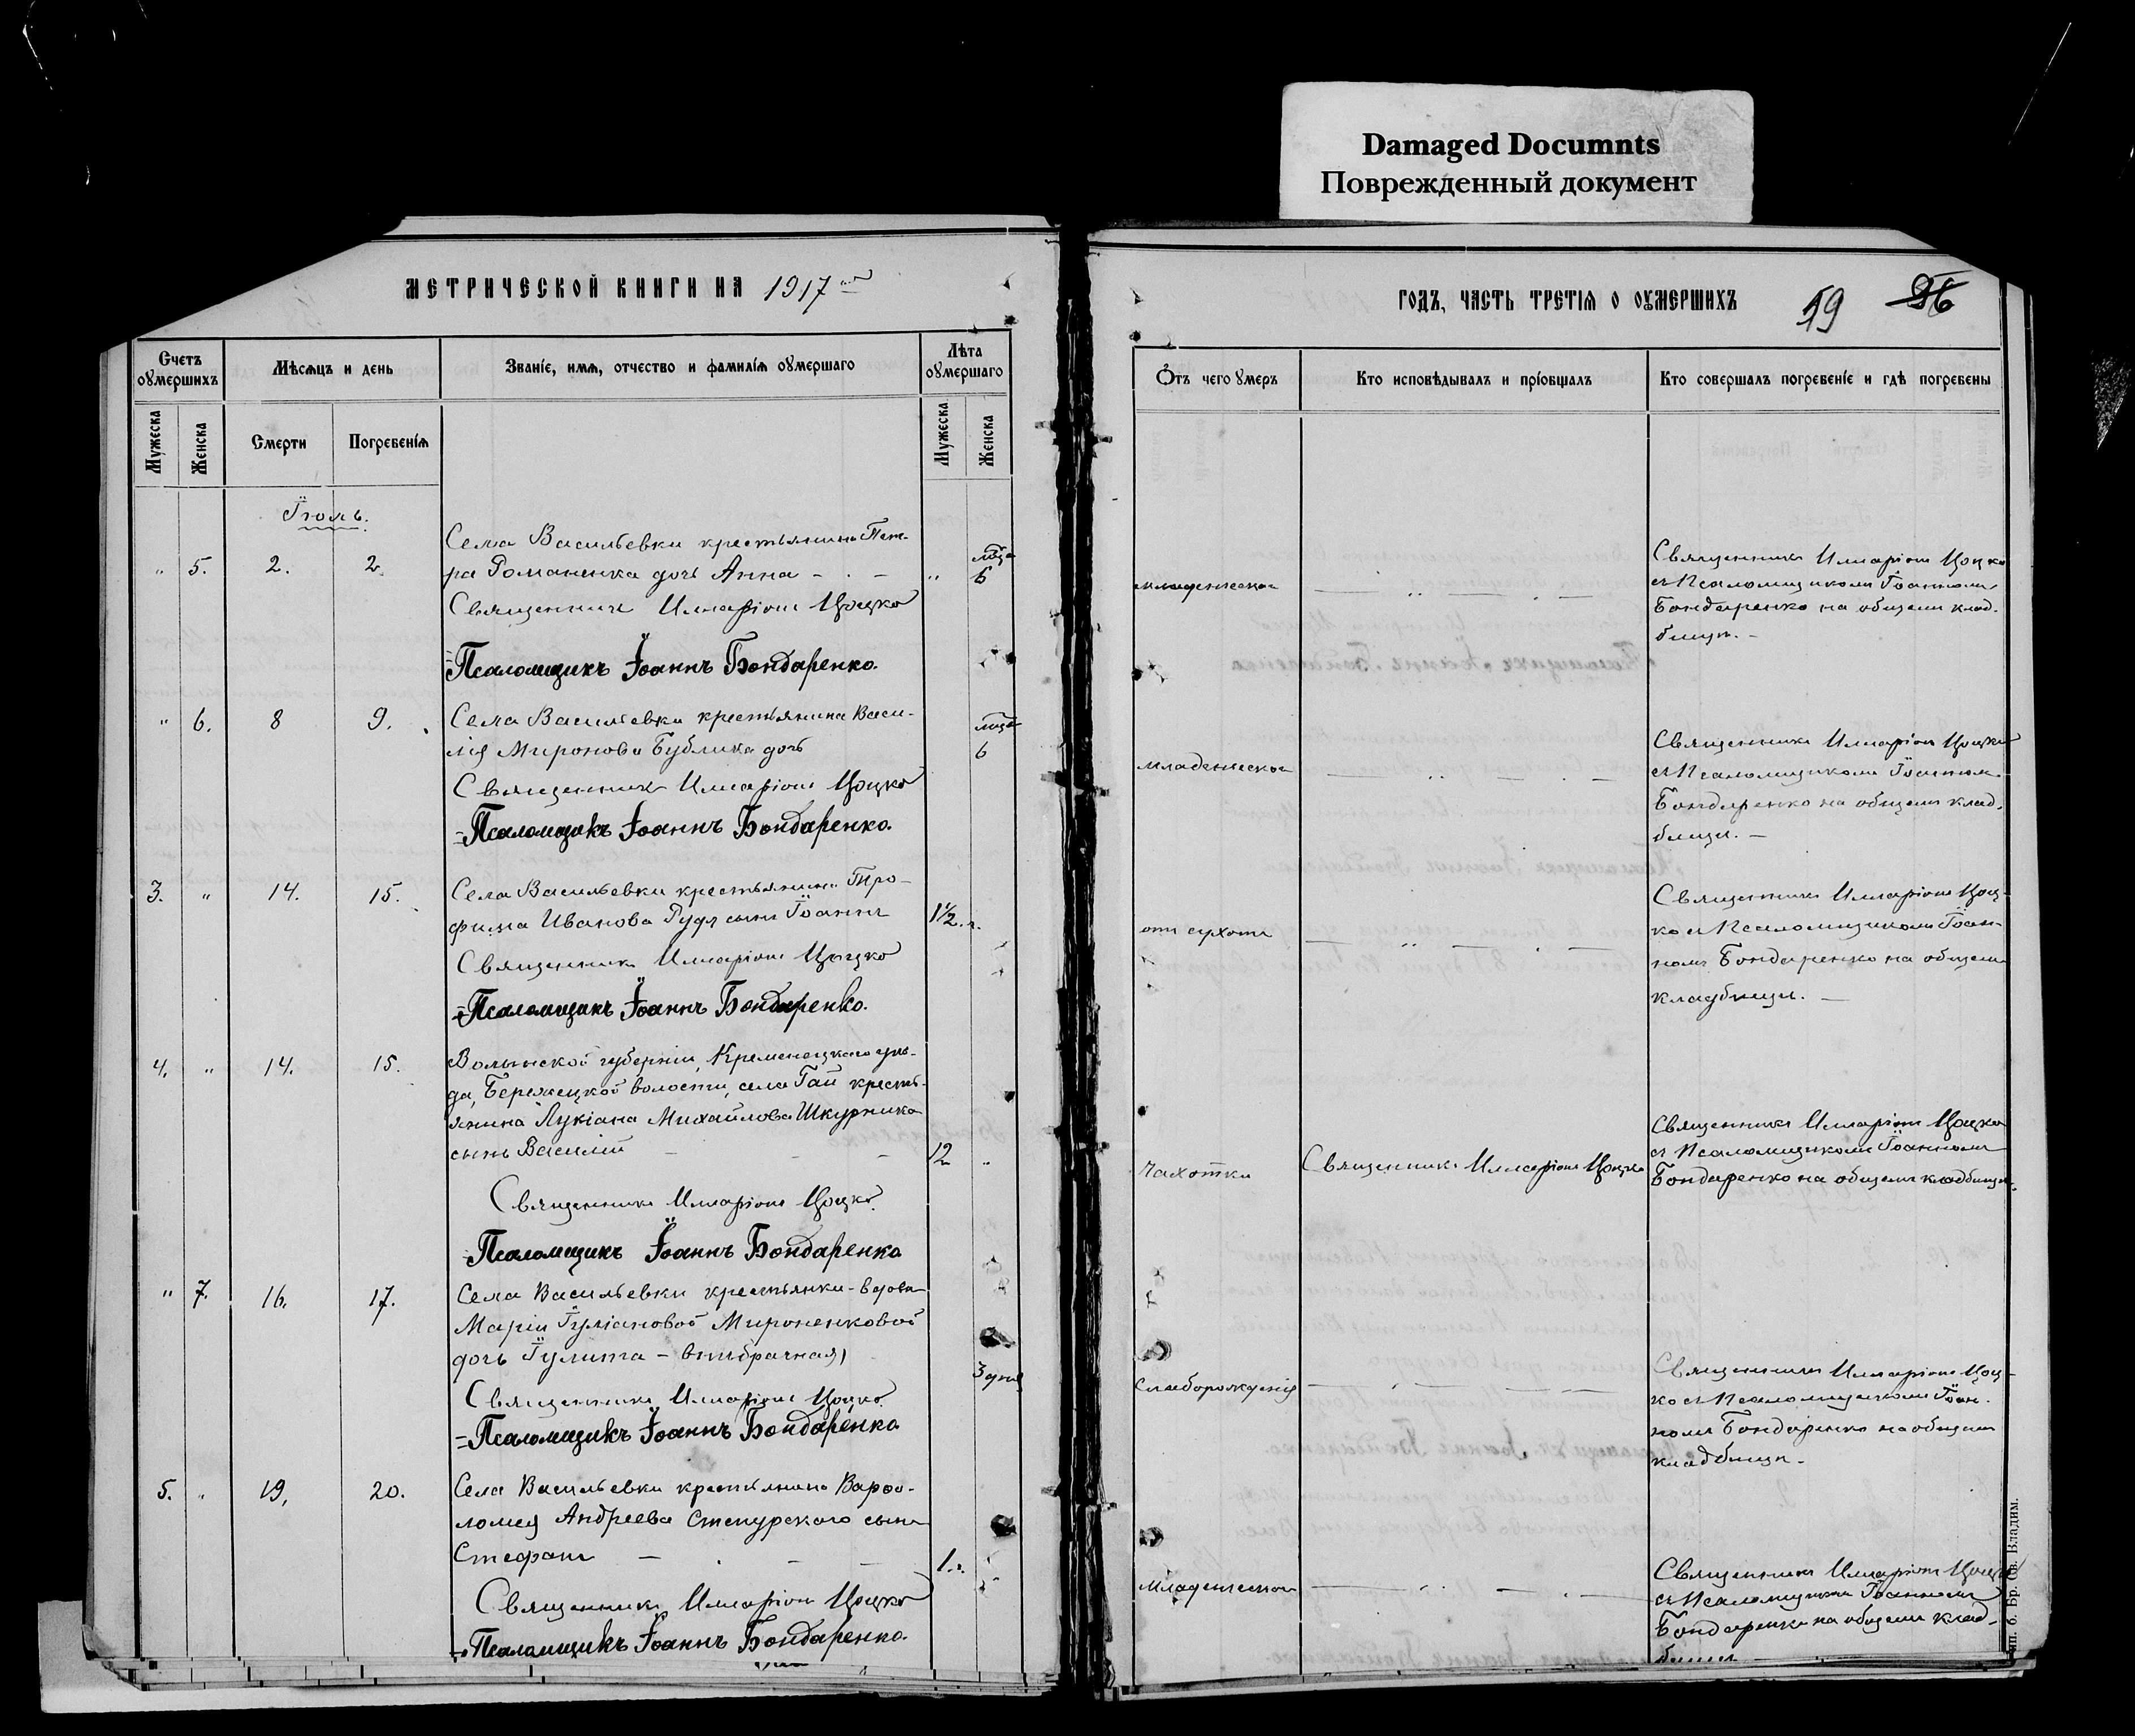 Damaged Documnts
Поврежденный документ
МЕТРИЧЕСКОЙ КНИГИ НА 1917 ый
ГОДЪ, ЧАСТЬ ТРЕТІЯ О ОУМЕРШИХЪ 19 96
Счетъ оумершихъ
Мѣсяцъ и день
Званіе, имя, отчество и фамилія оумершаго
Лѣта оумершаго
Мужеска
Женска
Смерти
Погребенія
Мужеска
Женска
Отъ чего умеръ
Кто исповѣдывалъ и пріобщалъ
Кто совершалъ погребеніе и гдѣ погребены
Іюль.
" 5. 2. 2.
Села Васильевки крестьянина Пет-
ра Романенка дочь Анна
" 6
Священникъ Илларіонъ Цоцко
Псаломщикъ Іоаннъ Бондаренко.
младенческой
Священникъ Илларіонъ Цоцко
съ Псаломщикомъ Іоанномъ
Бондаренко на общемъ клад-
бищѣ. —
" 6. 8 9.
Села Васильевки крестьянина Васи-
лія Миронова Бублика дочь
6
Священникъ Илларіонъ Цоцко
Псаломщикъ Іоаннъ Бондаренко.
младенческой
Священникъ Илларіонъ Цоцко
съ Псаломщикомъ Іоанном
Бондаренко на общемъ клад-
бищѣ. —
3. " 14. 15.
Села Васильевки крестьянина Тро-
фима Иванова Рудя сынъ Іоаннъ
1½ г.
Священникъ Илларіонъ Цоцко
Псаломщикъ Іоаннъ Бондаренко.
отъ сухотъ
Священникъ Илларіонъ Цоц-
ко съ Псаломщикомъ Іоан-
номъ Бондаренко на общемъ
кладбищѣ. —
4. " 14. 15.
Волынской губерніи, Кременецкаго уѣз-
да, Бережецкой волости, села Гаи кресть-
янина Лукіана Михайлова Шкурника
сынъ Василій
12 "
Священникъ Илларіонъ Цоцко.
Псаломщикъ Іоаннъ Бондаренко
Чахотки
Священникъ Илларіонъ Цоцко
Священникъ Илларіонъ Цоцко
съ Псаломщикомъ Іоанномъ
Бондаренко на общемъ кладбищѣ.
" 7. 16. 17.
Села Васильевки крестьянки-вдовы
Маріи Іуліановой Мироненковой
дочь Іулита – внѣбрачная
3 дня
Священникъ Илларіонъ Цоцко
Псаломщикъ Іоаннъ Бондаренко
Слаборожденія
Священникъ Илларіонъ Цоц-
ко съ Псаломщикомъ Іоан-
номъ Бондаренко на общемъ
кладбищѣ.
5. " 19. 20.
Села Васильевки крестьянина Варѳо-
ломея Андреева Степурского сынъ
Стефанъ
1 г.
Священникъ Илларіонъ Цоцко
Псаломщикъ Іоаннъ Бондаренко.
Младенческой
Священникъ Илларіонъ Цоцко
съ Псаломщикомъ Іоанномъ
Бондаренко на общемъ клад-
бищѣ